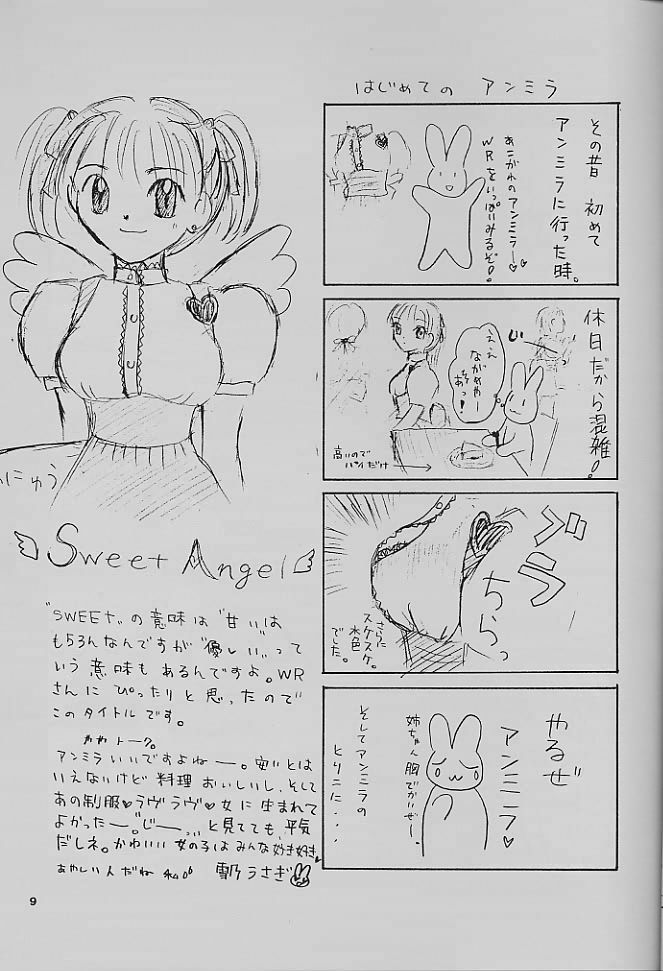 はじめての アンミラ
その昔 初めて
アンミラに行った時。
あこがれのアンミラー♡♡
WRをいっぱいみるぞ!
休日だから混雑!
じー
ええ
ながめやー
なあっ!
高いので
パイだけ
ブラ
ちらっ
さらに
スケスケ。
水色
でした。
やるぜ
アンミラ♡
姉ちゃん
胸でかいぜー。
そしてアンミラの
とりこに・・・
にゅう
Sweet Angel
"SWEET"の意味は"甘い"は
もちろんなんですが"優しい"って
いう意味もあるんですよ。WR
さんにぴったりと思ったので
このタイトルです。
トーク。
アンミラいいですよねー。安いとは
いえないけど料理おいしいし、そして
あの制服♡ラヴラヴ♡女に生まれて
よかったー。じー...と見てても、平気
だしネ。かわいい女の子はみんな好き好き♡
あやしい人だね 私
雪乃うさぎ
9